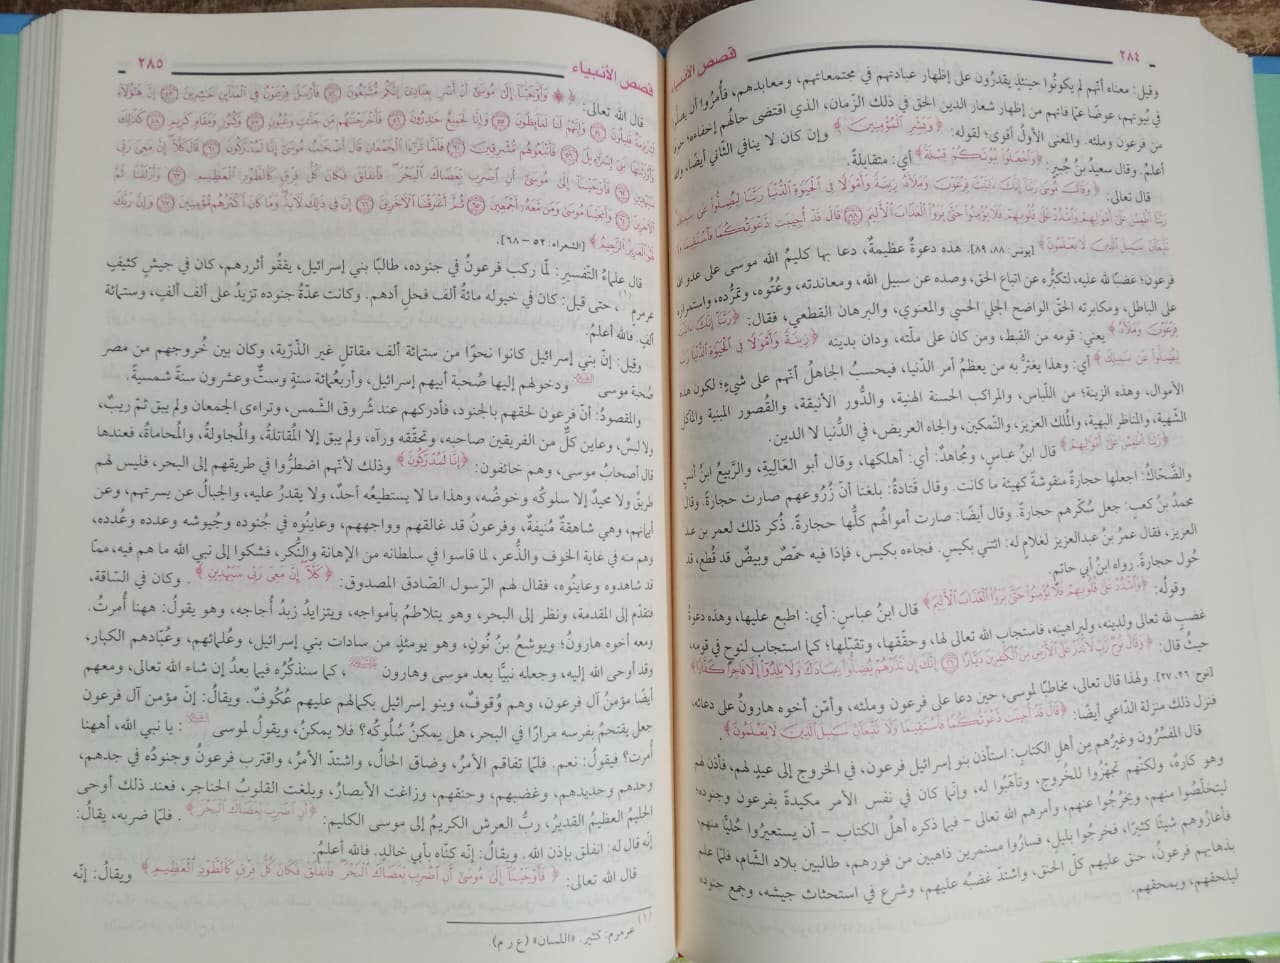 ٢٨٤ قصص الأنبياء
وقيل: معناه أنهم لم يكونُوا حينئذٍ يقدرُون على إظهار عبادتهم في مجتمعاتهم، ومعابدهم، فأُمرُوا أن
في بُيوتهم، عوضًا عمّا فاتهم من إظهار شعار الدين الحق في ذلك الزّمان، الذي اقتضى حالُهم إخفاءه؛
من فرعون وملئه. والمعنى الأولُ أقوى؛ لقوله: ﴿ وَبَشِّرِ الْمُؤْمِنِينَ ﴾ وإن كان لا ينافي الثّاني أيضًا،
أعلمُ. وقال سعيدُ بنُ جُبيرٍ: ﴿وَاجْعَلُوا بُيُوتَكُمْ قِبْلَةً﴾ أي: متقابلةً.
قال تعالى: ﴿ وَقَالَ مُوسَى رَبَّنَا إِنَّكَ ءَاتَيْتَ فِرْعَوْنَ وَمَلَأَهُ زِينَةً وَأَمْوَالًا فِي الْحَيَاةِ الدُّنْيَا رَبَّنَا لِيُضِلُّوا عَن سَبِيلِكَ
رَبَّنَا اطْمِسْ عَلَى أَمْوَالِهِمْ وَاشْدُدْ عَلَى قُلُوبِهِمْ فَلَا يُؤْمِنُوا حَتَّى يَرَوُا الْعَذَابَ الْأَلِيمَ ٨٨ قَالَ قَدْ أُجِيبَت دَّعْوَتُكُمَا فَاسْتَقِيمَا وَلَا
تَتَّبِعَانِّ سَبِيلَ الَّذِينَ لَا يَعْلَمُونَ﴾ [يونس: ٨٨، ٨٩]. هذه دعوةٌ عظيمةٌ، دعا بها كليمُ الله موسى على عدو الله
فرعون؛ غضبًا لله عليه، لتكبُّره عن اتباع الحق، وصده عن سبيل الله، ومعاندته، وعُتُوه، وتمرُّده، واستمراره
على الباطل، ومكابرته الحقّ الواضح الجلي الحسي والمعنوي، والبرهان القطعي، فقال: ﴿رَبَّنَا إِنَّكَ ءَاتَيْتَ
فِرْعَوْنَ وَمَلَأَهُ﴾ يعني: قومه من القبط، ومن كان على ملّته، ودان بدينه ﴿ زِينَةً وَأَمْوَالًا فِي الْحَيَاةِ الدُّنْيَا رَبَّنَا
لِيُضِلُّوا عَن سَبِيلِكَ ﴾ أي: وهذا يغترُّ به من يعظمُ أمر الدّنيا، فيحسبُ الجاهلُ أنّهم على شيءٍ؛ لكون هذه
الأموال، وهذه الزينة؛ من اللّباس، والمراكب الحسنة الهنية، والدُّور الأنيقة، والقُصور المبنية والمآكل
الشّهية، والمناظر البهية، والمُلك العزيز، والتّمكين، والجاه العريض، في الدُّنيا لا الدين.
﴿رَبَّنَا اطْمِسْ عَلَى أَمْوَالِهِمْ﴾ قال ابنُ عباسٍ، ومُجاهدٌ: أي: أهلكها، وقال أبو العَالِيةِ، والرَّبيعُ ابنُ أنسٍ
والضّحّاكُ: اجعلها حجارةً منقوشةً كهيئة ما كانت. وقال قتادةُ: بلغنا أنّ زُرُوعهم صارت حجارةً. وقال
محمدُ بنُ كعبٍ: جعل سُكّرهم حجارةً. وقال أيضًا: صارت أموالُهم كلُّها حجارةً. ذُكر ذلك لعمر بن عبد
العزيز، فقال عمرُ بنُ عبدالعزيز لغلامٍ له: ائتني بكيسٍ. فجاءه بكيسٍ، فإذا فيه حمّصٌ وبيضٌ قد قُطع، قد
حُول حجارةً. رواه ابنُ أبي حاتمٍ.
وقولُه: ﴿وَاشْدُدْ عَلَى قُلُوبِهِمْ فَلَا يُؤْمِنُوا حَتَّى يَرَوُا الْعَذَابَ الْأَلِيمَ﴾ قال ابنُ عباسٍ: أي: اطبع عليها، وهذه دعوةُ
غضبٍ لله تعالى ولدينه، ولبراهينه، فاستجاب الله تعالى لها، وحقّقها، وتقبّلها؛ كما استجاب لنوحٍ في قومه،
حيثُ قال: ﴿ وَقَالَ نُوحٌ رَّبِّ لَا تَذَرْ عَلَى الْأَرْضِ مِنَ الْكَافِرِينَ دَيَّارًا ٢٦ إِنَّكَ إِن تَذَرْهُمْ يُضِلُّوا عِبَادَكَ وَلَا يَلِدُوا إِلَّا فَاجِرًا كَفَّارًا﴾
[نوح: ٢٦، ٢٧]. ولهذا قال تعالى، مخاطبًا لموسى، حين دعا على فرعون وملئه، وأمّن أخوه هارونُ على دعائه،
فنزل ذلك منزلة الدّاعي أيضًا: ﴿قَالَ قَدْ أُجِيبَت دَّعْوَتُكُمَا فَاسْتَقِيمَا وَلَا تَتَّبِعَانِّ سَبِيلَ الَّذِينَ لَا يَعْلَمُونَ﴾.
قال المفسّرُون وغيرُهم مِن أهلِ الكتابِ: استأذن بنو إسرائيل فرعون، في الخروج إلى عيدٍ لهم، فأذن لهم
وهو كارهٌ، ولكنّهم تجهّزُوا للخُروج، وتأهّبُوا له، وإنّما كان في نفس الأمر مكيدةً بفرعون وجنوده؛
ليتخلّصُوا منهم، ويخرُجُوا عنهم، وأمرهم الله تعالى - فيما ذكره أهلُ الكتاب - أن يستعيرُوا حُليًّا منهم،
فأعارُوهم شيئًا كثيرًا، فخرجُوا بليلٍ، فسارُوا مستمرين ذاهبين من فورهم، طالبين بلاد الشّام، فلمّا علم
بذهابهم فرعونُ، حنق عليهم كلّ الحنق، واشتدّ غضبُه عليهم، وشرع في استحثاث جيشه، وجمع جنوده
ليلحقهم، ويمحقهم.
قصص الأنبياء ٢٨٥
قال الله تعالى: ﴿ وَأَوْحَيْنَا إِلَى مُوسَى أَنْ أَسْرِ بِعِبَادِي إِنَّكُم مُّتَّبَعُونَ ٥٢ فَأَرْسَلَ فِرْعَوْنُ فِي الْمَدَائِنِ حَاشِرِينَ ٥٣ إِنَّ هَؤُلَاءِ
لَشِرْذِمَةٌ قَلِيلُونَ ٥٤ وَإِنَّهُمْ لَنَا لَغَائِظُونَ ٥٥ وَإِنَّا لَجَمِيعٌ حَاذِرُونَ ٥٦ فَأَخْرَجْنَاهُم مِّن جَنَّاتٍ وَعُيُونٍ ٥٧ وَكُنُوزٍ وَمَقَامٍ كَرِيمٍ ٥٨ كَذَلِكَ
وَأَوْرَثْنَاهَا بَنِي إِسْرَائِيلَ ٥٩ فَأَتْبَعُوهُم مُّشْرِقِينَ ٦٠ فَلَمَّا تَرَاءَا الْجَمْعَانِ قَالَ أَصْحَابُ مُوسَى إِنَّا لَمُدْرَكُونَ ٦١ قَالَ كَلَّا إِنَّ مَعِيَ رَبِّي
سَيَهْدِينِ ٦٢ فَأَوْحَيْنَا إِلَى مُوسَى أَنِ اضْرِب بِّعَصَاكَ الْبَحْرَ فَانفَلَقَ فَكَانَ كُلُّ فِرْقٍ كَالطَّوْدِ الْعَظِيمِ ٦٣ وَأَزْلَفْنَا ثَمَّ
الْآخَرِينَ ٦٤ وَأَنجَيْنَا مُوسَى وَمَن مَّعَهُ أَجْمَعِينَ ٦٥ ثُمَّ أَغْرَقْنَا الْآخَرِينَ ٦٦ إِنَّ فِي ذَلِكَ لَآيَةً وَمَا كَانَ أَكْثَرُهُم مُّؤْمِنِينَ ٦٧ وَإِنَّ رَبَّكَ
لَهُوَ الْعَزِيزُ الرَّحِيمُ﴾ [الشعراء: ٥٢ – ٦٨].
قال علماءُ التّفسيرِ: لمّا ركب فرعونُ في جنوده، طالبًا بني إسرائيل، يقفُو أثرهم، كان في جيشٍ كثيفٍ
عرمرمٍ (١)، حتى قيل: كان في خيوله مائةُ ألف فحلٍ أدهم. وكانت عدّةُ جنوده تزيدُ على ألف ألفٍ، وستمائة
ألفٍ. فالله أعلمُ.
وقيل: إنّ بني إسرائيل كانوا نحوًا من ستمائة ألف مقاتلٍ غير الذّرّية، وكان بين خُروجهم من مصر
صُحبة موسى عليه السلام ودخولهم إليها صُحبة أبيهم إسرائيل، وأربعُمائة سنةٍ وستٌّ وعشرون سنةً شمسيةً.
والمقصودُ: أنّ فرعون لحقهم بالجنود، فأدركهم عند شُروق الشّمس، وتراءى الجمعان ولم يبق ثمّ ريبٌ،
ولا لبسٌ، وعاين كلٌّ من الفريقين صاحبه، وتحقّقه ورآه، ولم يبق إلا المُقاتلةُ، والمُجاولةُ، والمُحاماةُ، فعندها
قال أصحابُ موسى، وهم خائفون: ﴿إِنَّا لَمُدْرَكُونَ﴾ وذلك لأنّهم اضطرُّوا في طريقهم إلى البحر، فليس لهم
طريقٌ ولا محيدٌ إلا سلوكُه وخوضُه، وهذا ما لا يستطيعُه أحدٌ، ولا يقدرُ عليه، والجبالُ عن يسرتهم، وعن
أيمانهم، وهي شاهقةٌ مُنيفةٌ، وفرعونُ قد غالقهم وواجههم، وعاينُوه في جُنوده وجُيوشه وعدده وعُدده،
وهم منه في غاية الخوف والذُّعر، لما قاسوا في سلطانه من الإهانة والنُّكر، فشكوا إلى نبي الله ما هم فيه، ممّا
قد شاهدوه وعاينُوه، فقال لهم الرّسول الصّادق المصدوق: ﴿كَلَّا إِنَّ مَعِيَ رَبِّي سَيَهْدِينِ﴾. وكان في السّاقة،
فتقدّم إلى المقدمة، ونظر إلى البحر، وهو يتلاطمُ بأمواجه، ويتزايدُ زبدُ أُجاجه، وهو يقولُ: ههنا أُمرتُ.
ومعه أخوه هارونُ؛ ويوشعُ بنُ نُونٍ، وهو يومئذٍ من سادات بني إسرائيل، وعُلمائهم، وعُبّادهم الكبار،
وقد أوحى الله إليه، وجعله نبيًّا بعد موسى وهارون عليهما السلام، كما سنذكُرُه فيما بعدُ إن شاء الله تعالى، ومعهم
أيضًا مؤمنُ آل فرعون، وهم وُقوفٌ، وبنو إسرائيل بكمالهم عليهم عُكُوفٌ. ويقالُ: إنّ مؤمن آل فرعون
جعل يقتحمُ بفرسه مرارًا في البحر، هل يمكنُ سُلُوكُه؟ فلا يمكنُ، ويقولُ لموسى عليه السلام: يا نبي الله، أههنا
أُمرت؟ فيقولُ: نعم. فلمّا تفاقم الأمرُ، وضاق الحالُ، واشتدّ الأمرُ، واقترب فرعونُ وجنودُه في جدهم،
وحدهم وحديدهم، وغضبهم، وحنقهم، وزاغت الأبصارُ، وبلغت القلوبُ الحناجر، فعند ذلك أوحى
الحليمُ العظيمُ القديرُ، ربُّ العرش الكريمُ إلى موسى الكليم: ﴿أَنِ اضْرِب بِّعَصَاكَ الْبَحْرَ﴾. فلمّا ضربه، يقالُ:
إنّه قال له: انفلق بإذن الله. ويقالُ: إنّه كنّاه بأبي خالدٍ. فالله أعلمُ.
قال الله تعالى: ﴿ فَأَوْحَيْنَا إِلَى مُوسَى أَنِ اضْرِب بِّعَصَاكَ الْبَحْرَ فَانفَلَقَ فَكَانَ كُلُّ فِرْقٍ كَالطَّوْدِ الْعَظِيمِ ﴾ ويقالُ: إنّه
(١) عرمرم: كثير. «اللسان» (ع ر م).